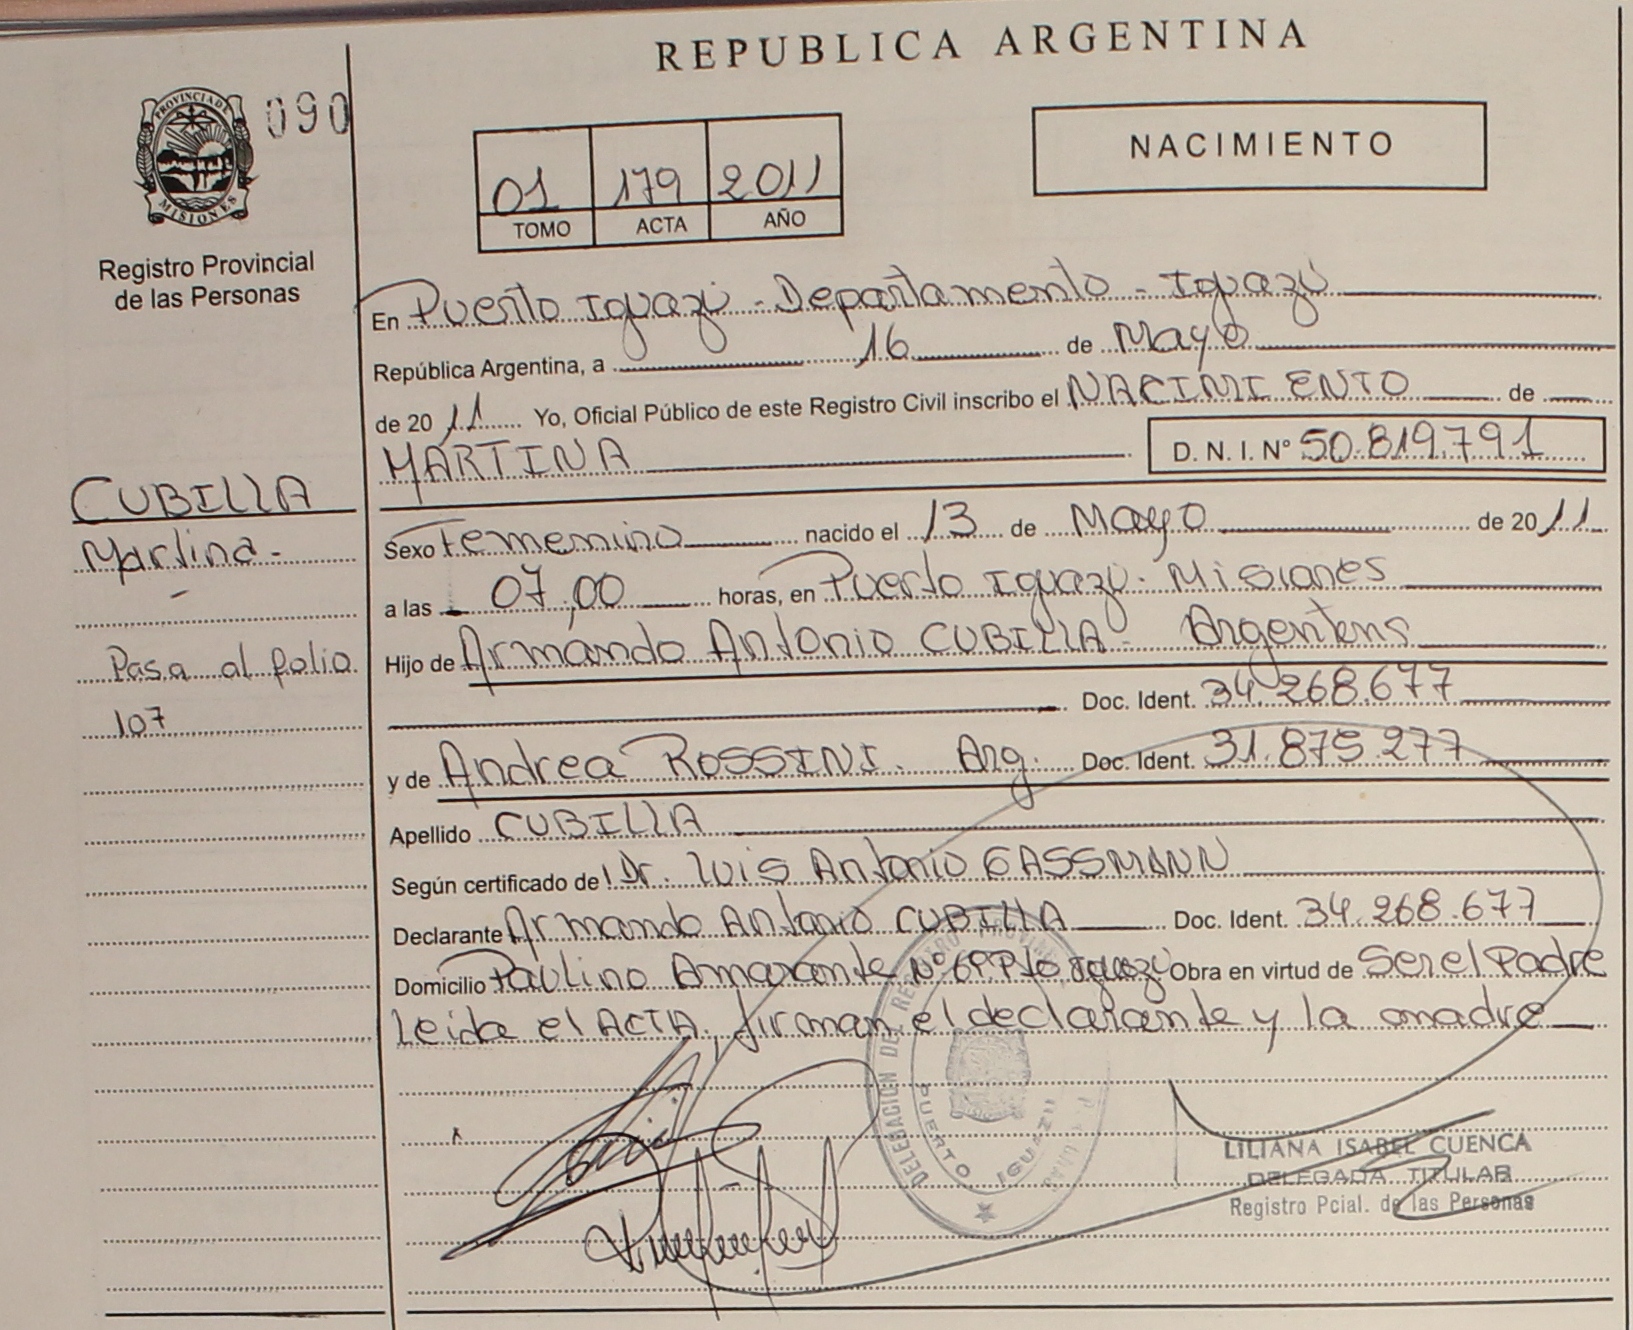 REPUBLICA ARGENTINA
PROVINCIA DE
MISIONES
090
Registro Provincial
de las Personas
01 179 2011
TOMO ACTA AÑO
NACIMIENTO
En Puerto Iguazú - Departamento - Iguazú
República Argentina, a 16 de Mayo
de 20 11 Yo, Oficial Público de este Registro Civil inscribo el NACIMIENTO de
MARTINA D. N. I. Nº 50.819.791
CUBILLA
Martina -
Pasa al folio
107
Sexo Femenino nacido el 13 de Mayo de 20 11
a las 07,00 horas, en Puerto Iguazú - Misiones
Hijo de Armando Antonio CUBILLA - Argentino
Doc. Ident. 34.268.677
y de Andrea ROSSINI. Arg. Doc. Ident. 31.875.277
Apellido CUBILLA
Según certificado de Dr. Luis Antonio GASSMANN
Declarante Armando Antonio CUBILLA Doc. Ident. 34.268.677
Domicilio Paulino Amarante Nº 69 Pto Iguazú Obra en virtud de Ser el Padre
Leida el ACTA, firman el declarante y la madre
DELEGACION DEL REGISTRO PROVINCIAL
PUERTO IGUAZU
LILIANA ISABEL CUENCA
DELEGADA TITULAR
Registro Pcial. de las Personas